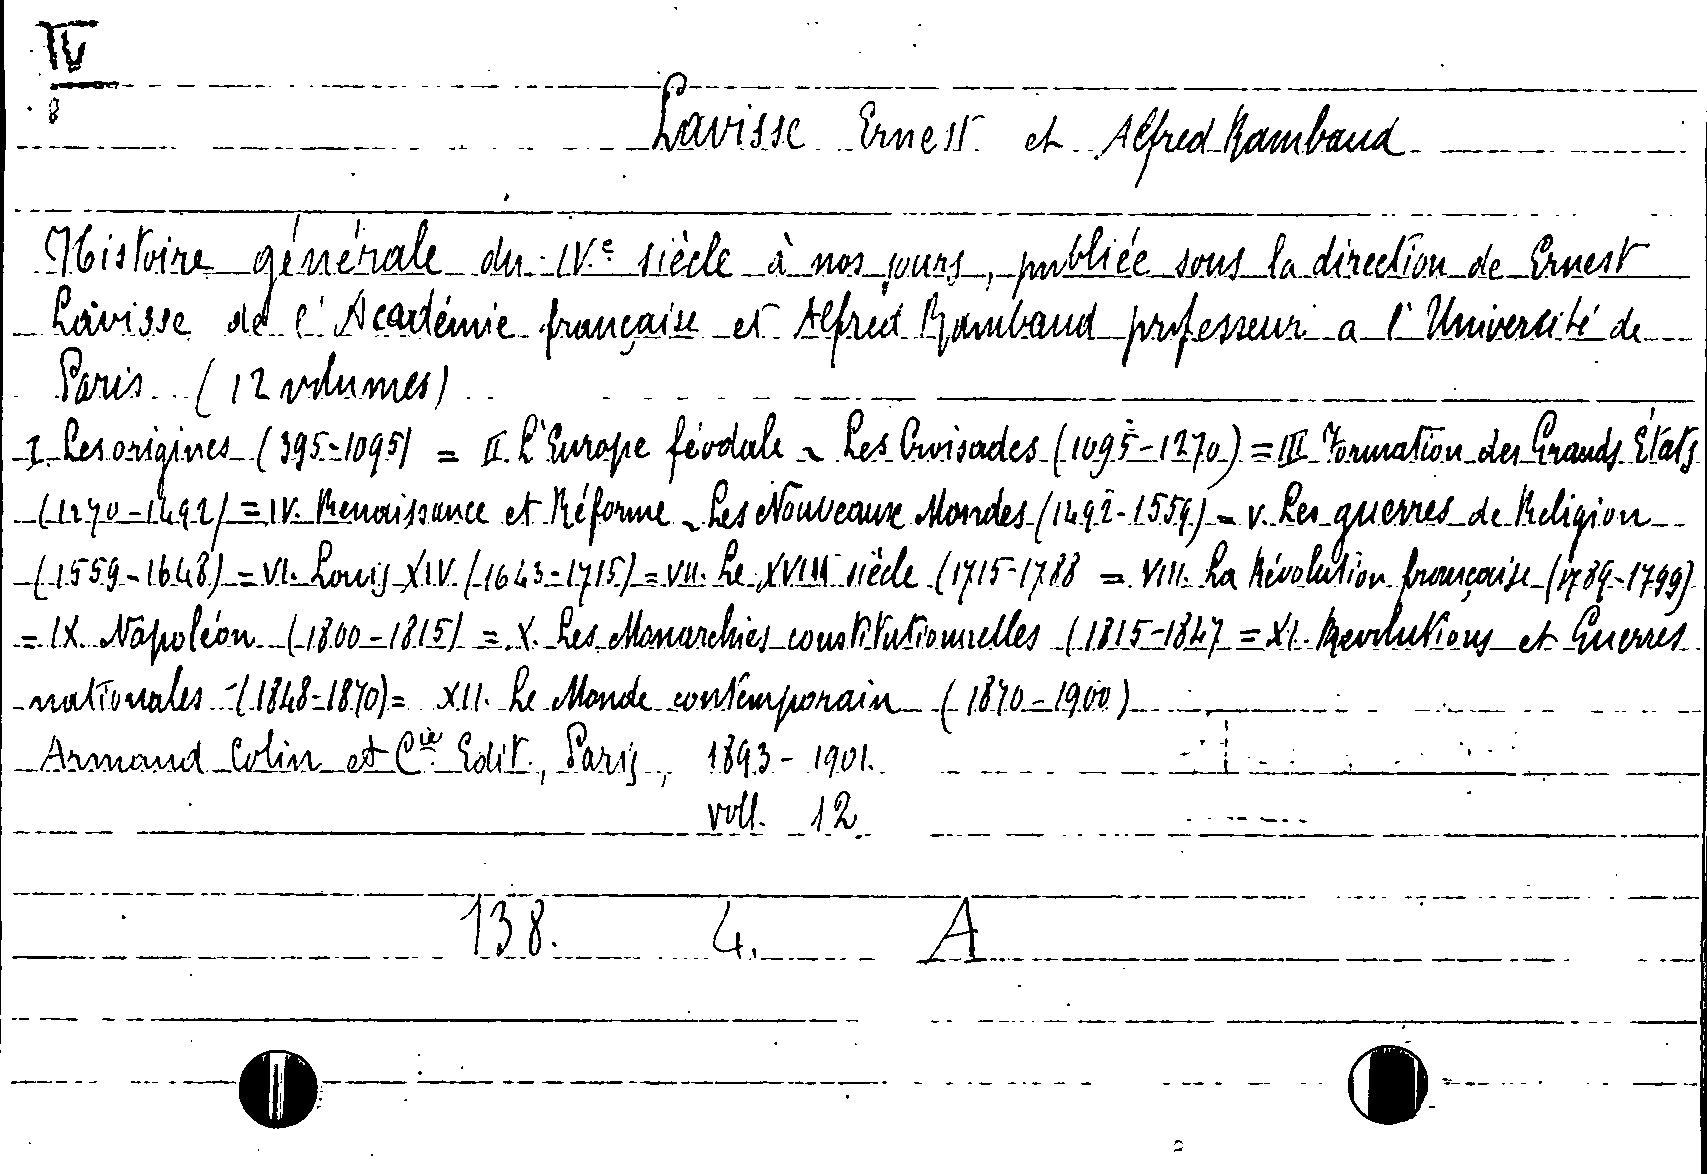 IV
8
Lavisse Ernest et Alfred Rambaud
Histoire générale du IVe siècle à nos jours, publiée sous la direction de Ernest
Lavisse de l'Académie française et Alfred Rambaud professeur a l'Université de
Paris (12 volumes)
I. Les origines (395-1095) = II. L'Europe féodale ~ Les Croisades (1095-1270) = III Formation des Grands États
(1270-1492) = IV. Renaissance et Réforme ~ Les Nouveaux Mondes (1492-1559) = V. Les guerres de Religion
(1559-1648) = VI. Louis XIV. (1643-1715) = VII. Le XVIII siècle (1715-1788 = VIII. La Révolution française (1789-1799)
= IX. Napoléon (1800-1815) = X. Les Monarchies constitutionnelles (1815-1847 = XI. Revolutions et Guerres
nationales (1848-1870) = XII. Le Monde contemporain (1870-1900)
Armand Colin et Cie Edit., Paris, 1893-1901.
voll. 12
138. 4. A